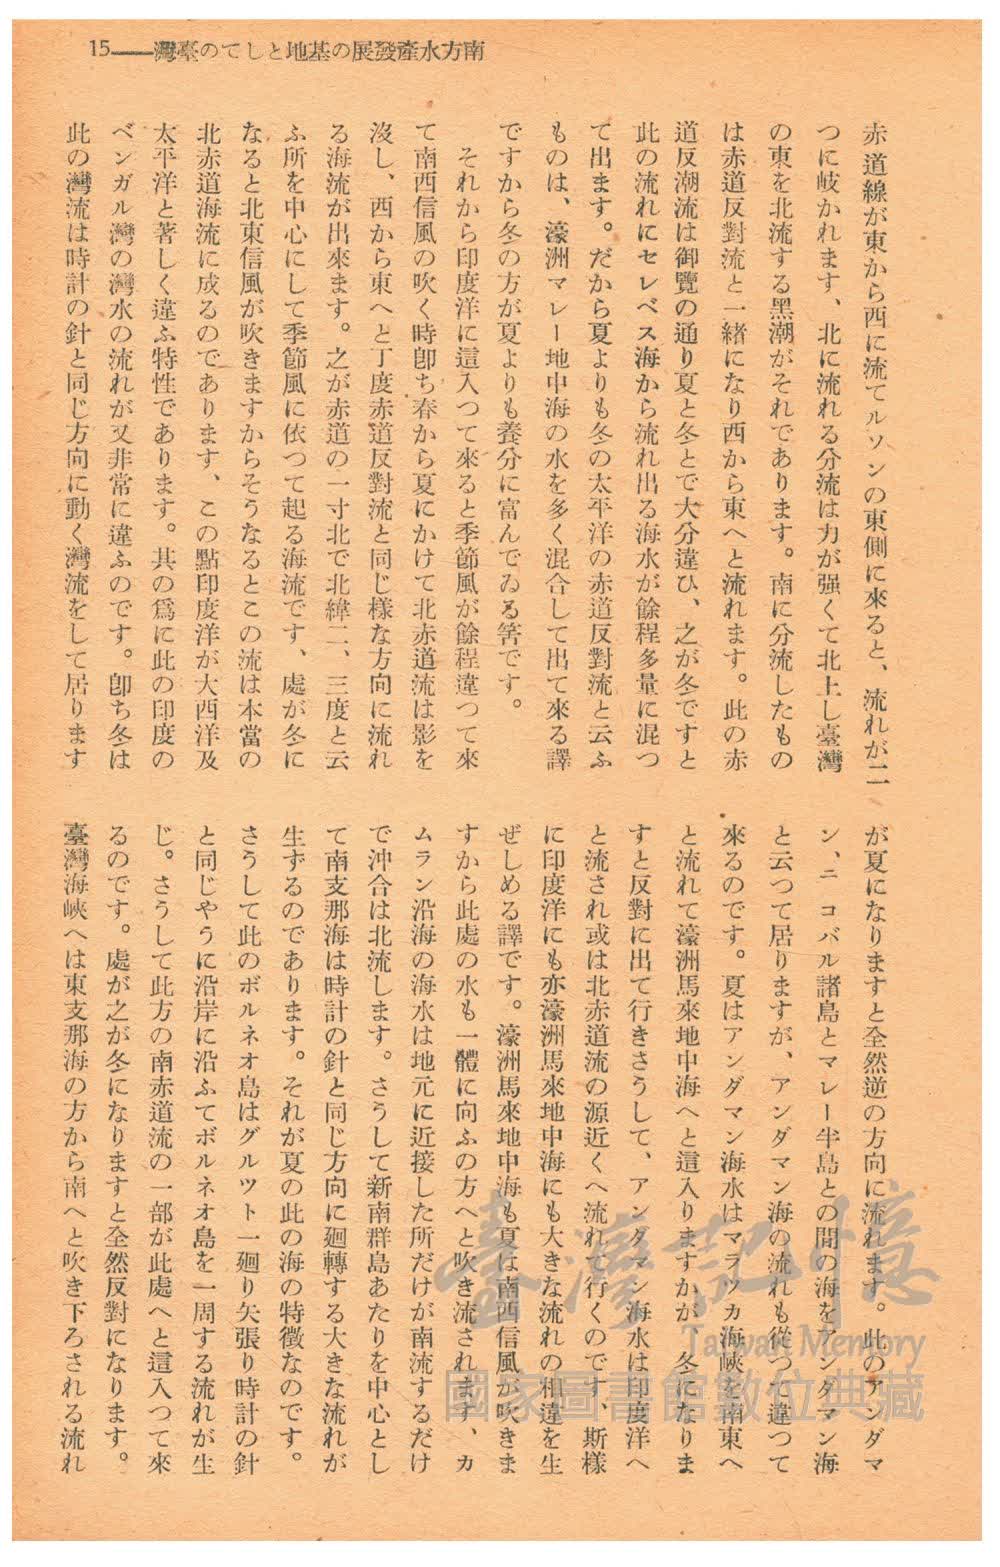 15――灣臺のてしと地基の展發產水方南
赤道線が東から西に流てルソンの東側に來ると、流れが二
つに岐かれます、北に流れる分流は力が强くて北上し臺灣
の東を北流する黑潮がそれであります。南に分流したもの
は赤道反對流と一緒になり西から東へと流れます。此の赤
道反潮流は御覽の通り夏と冬とで大分違ひ、之が冬ですと
此の流れにセレベス海から流れ出る海水が餘程多量に混つ
て出ます。だから夏よりも冬の太平洋の赤道反對流と云ふ
ものは、濠洲マレー地中海の水を多く混合して出て來る譯
ですから冬の方が夏よりも養分に富んでゐる筈です。
それから印度洋に這入つて來ると季節風が餘程違つて來
て南西信風の吹く時卽ち春から夏にかけて北赤道流は影を
沒し、西から東へと丁度赤道反對流と同じ樣な方向に流れ
る海流が出來ます。之が赤道の一寸北で北緯二、三度と云
ふ所を中心にして季節風に依つて起る海流です、處が冬に
なると北東信風が吹きますからそうなるとこの流は本當の
北赤道海流に成るのであります、この點印度洋が大西洋及
太平洋と著しく違ふ特性であります。其の爲に此の印度の
ベンガル灣の灣水の流れが又非常に違ふのです。卽ち冬は
此の灣流は時計の針と同じ方向に動く灣流をして居ります
が夏になりますと全然逆の方向に流れます。此のアンダマ
ン、ニコバル諸島とマレー半島との間の海をアンダマン海
と云つて居りますが、アンダマン海の流れも從つて違つて
來るのです。夏はアンダマン海水はマラツカ海峽を南東へ
と流れて濠洲馬來地中海へと這入りますかが、冬になりま
すと反對に出て行きさうして、アンダマン海水は印度洋へ
と流され或は北赤道流の源近くへ流れて行くのです、斯樣
に印度洋にも亦濠洲馬來地中海にも大きな流れの相違を生
ぜしめる譯です。濠洲馬來地中海も夏は南西信風が吹きま
すから此處の水も一體に向ふの方へと吹き流されます、カ
ムラン沿海の海水は地元に近接した所だけが南流するだけ
で沖合は北流します。さうして新南群島あたりを中心とし
て南支那海は時計の針と同じ方向に廻轉する大きな流れが
生ずるのであります。それが夏の此の海の特徵なのです。
さうして此のボルネオ島はグルツト一廻り矢張り時計の針
と同じやうに沿岸に沿ふてボルネオ島を一周する流れが生
じ。さうして此方の南赤道流の一部が此處へと這入つて來
るのです。處が之が冬になりますと全然反對になります。
臺灣海峽へは東支那海の方から南へと吹き下ろされる流れ
臺灣記憶
Taiwan Memory
國家圖書館數位典藏